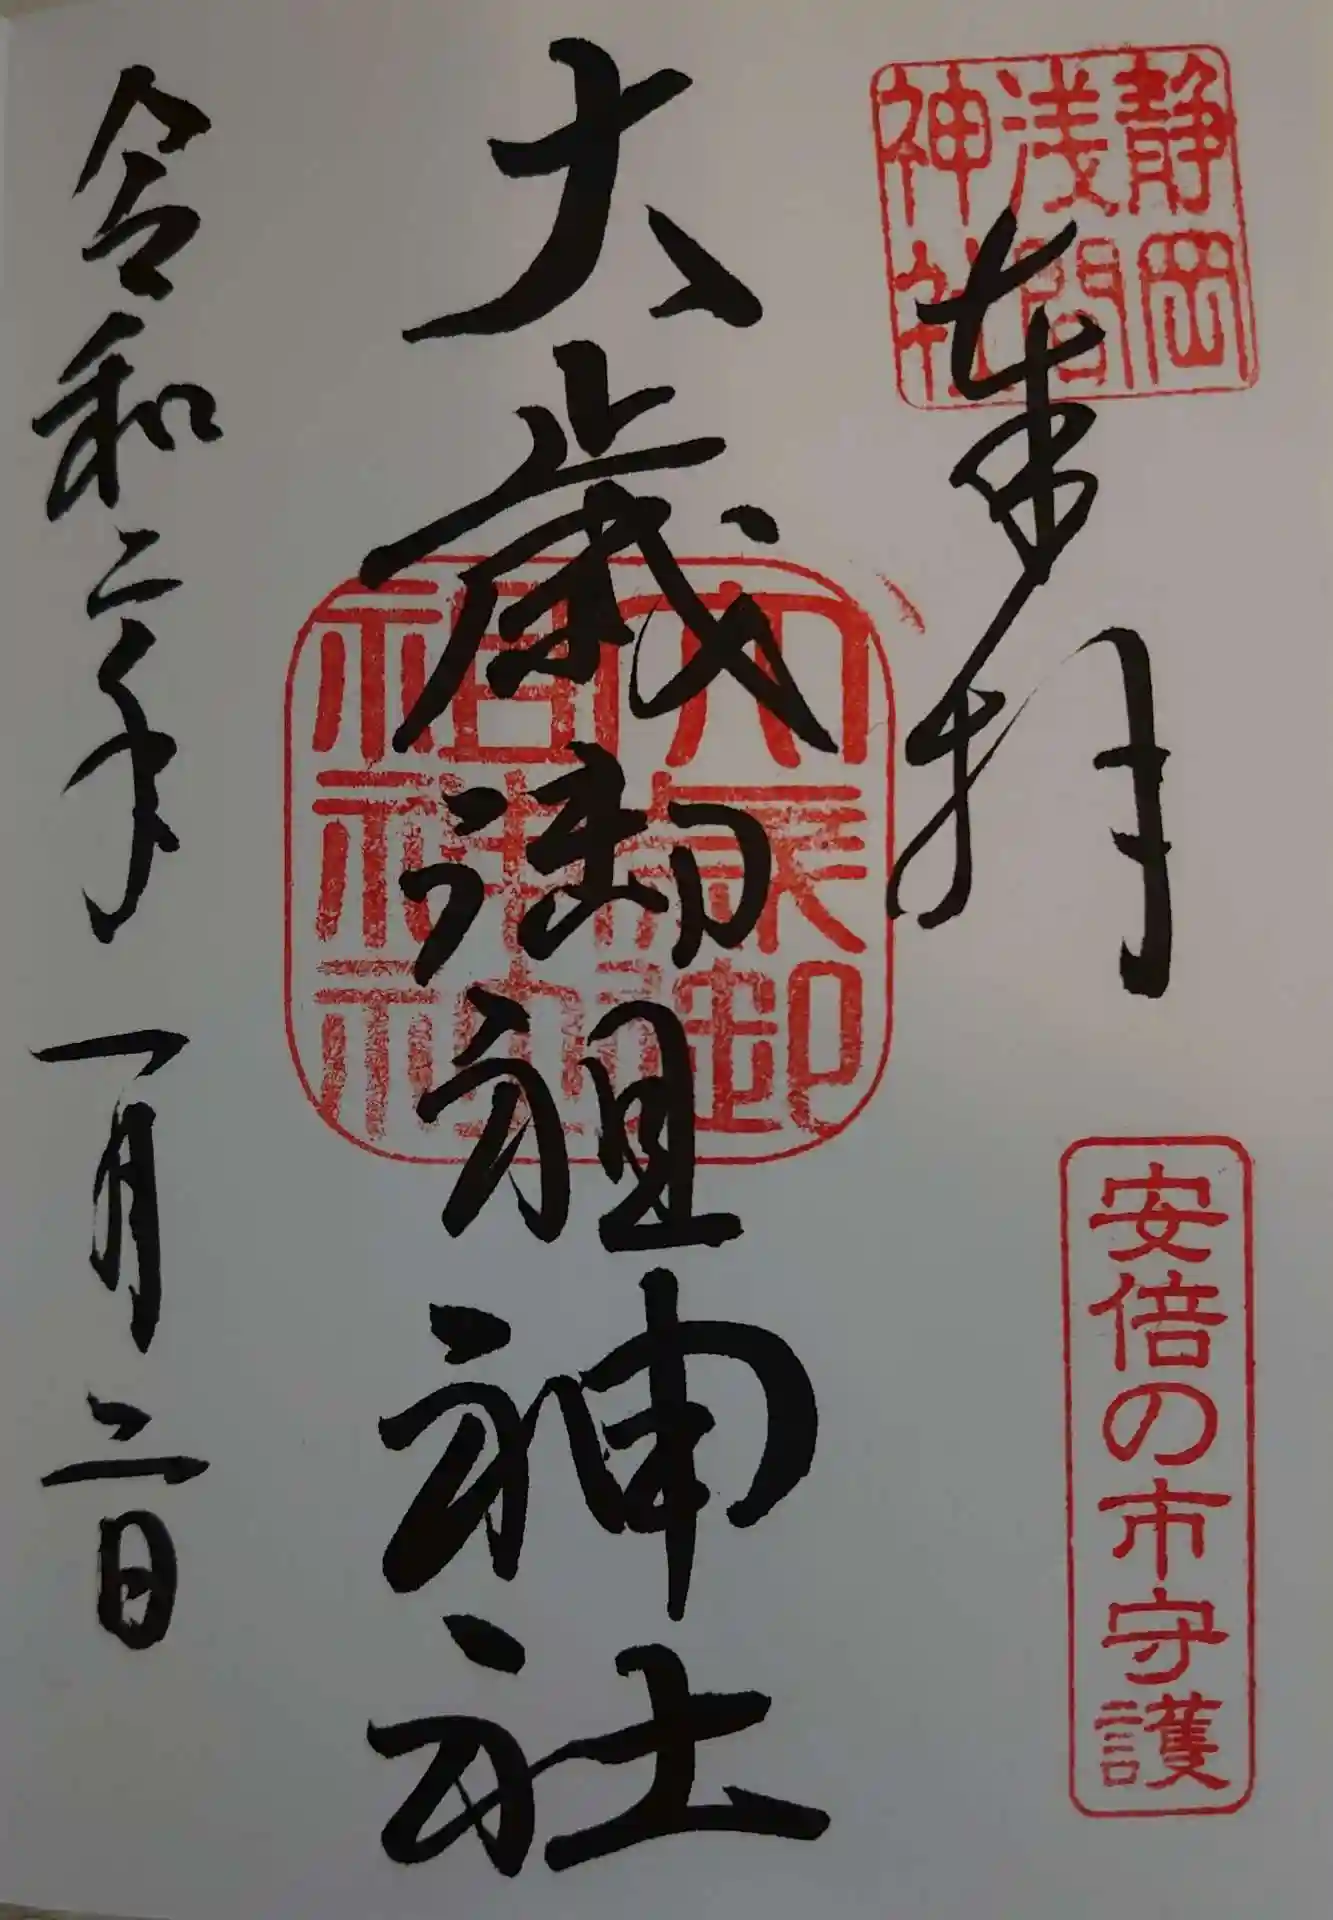 静岡
浅間
神社
奉拝
安倍の市守護
大歳御祖神社
大歳御
祖神社
令和二年一月二日